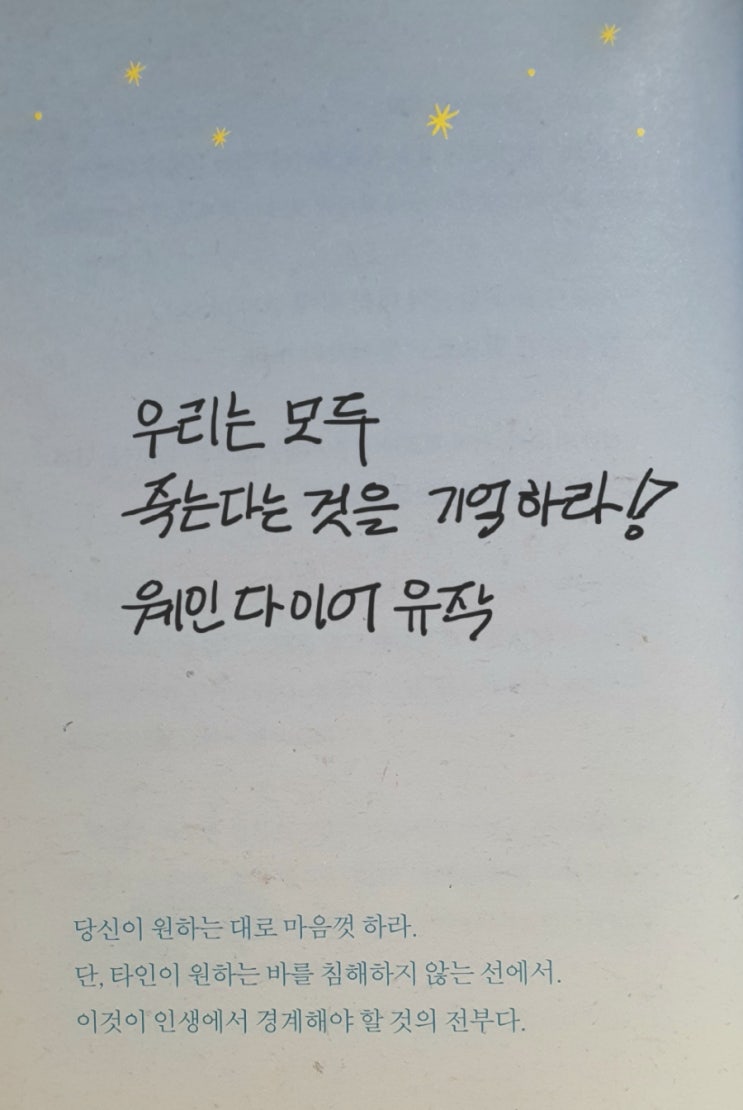 우리는 모두
죽는다는 것을 기억하라!
웨인 다이어 유작
당신이 원하는 대로 마음껏 하라.
단, 타인이 원하는 바를 침해하지 않는 선에서.
이것이 인생에서 경계해야 할 것의 전부다.